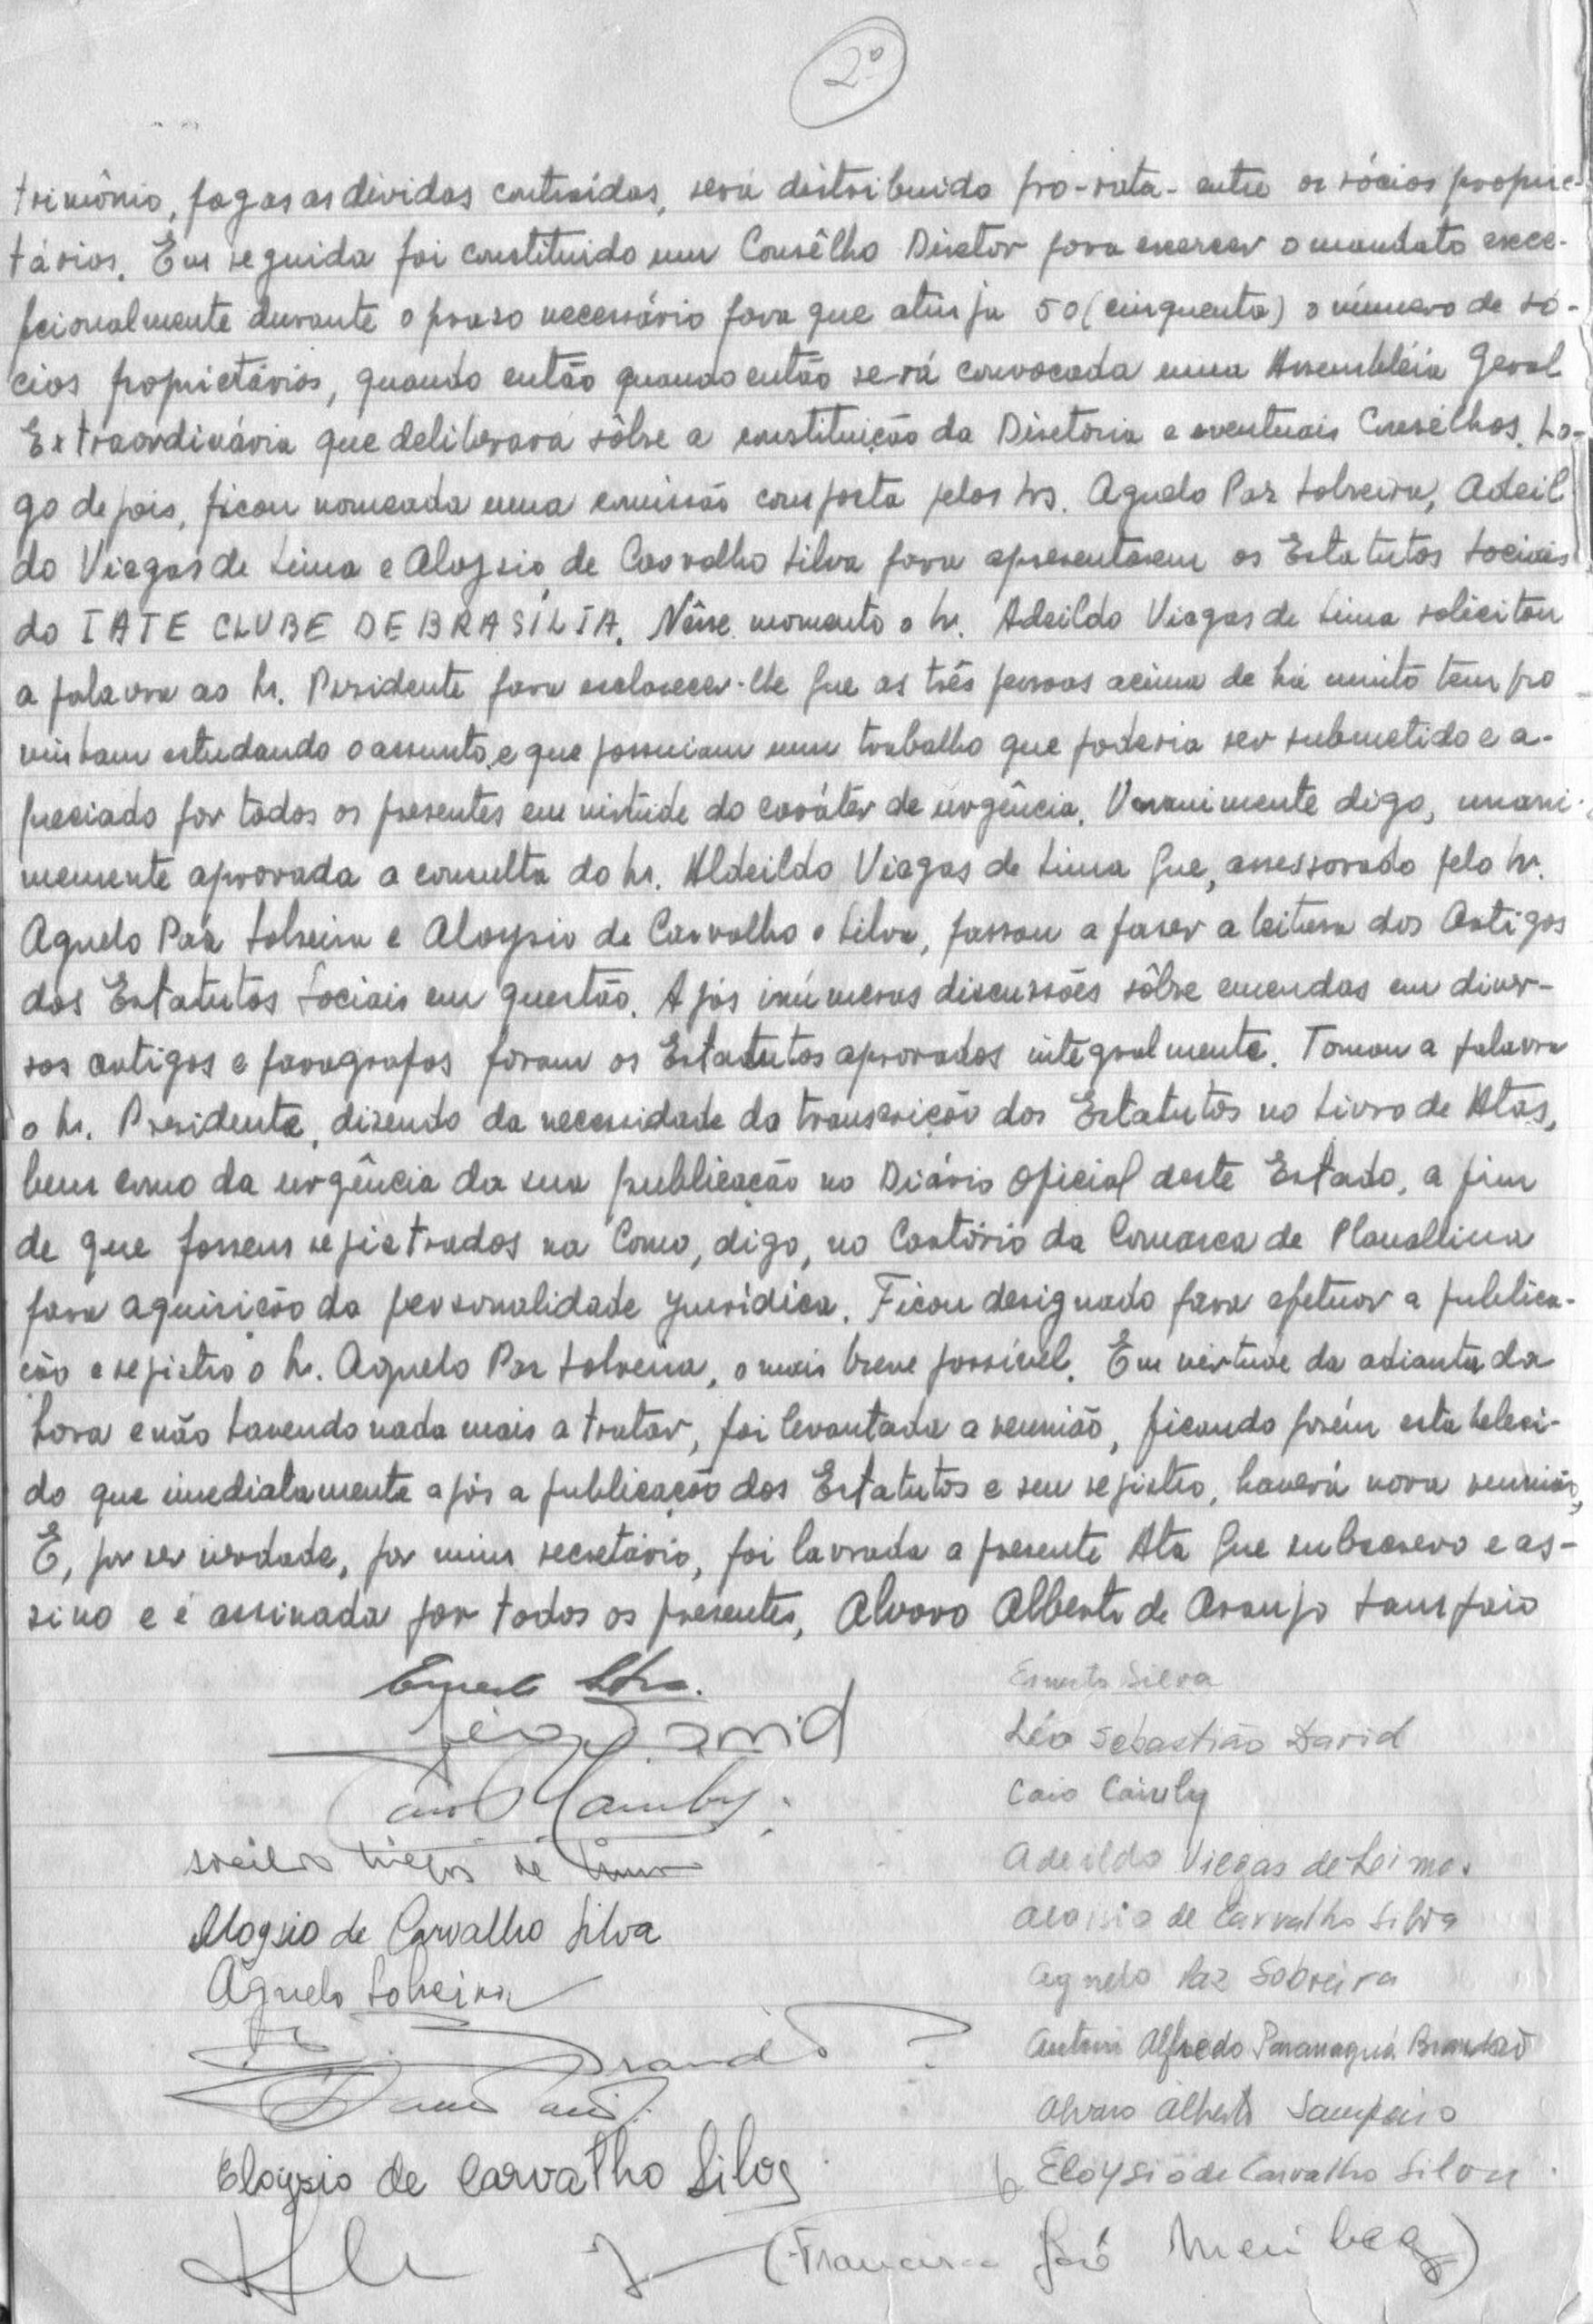 2º
trimônio, pagas as dívidas contraídas, será distribuido pro-rata- entre os sócios proprie-
tários. Em seguida foi constituido um Consêlho Diretor para exercer o mandato exce-
pcionalmente durante o praso necessário para que atinja 50 (cinquenta) o número de só-
cios proprietários, quando então quando então será convocada uma Assembléia Geral
Extraordinária que deliberará sôbre a constituição da Diretoria e eventuais Consêlhos. Lo-
go depois, ficou nomeada uma comissão composta pelos Srs. Agnelo Paz Sobreira, Adeil
do Viegas de Lima e Aloysio de Carvalho Silva para apresentarem os Estatutos Sociais
do IATE CLUBE DE BRASÍLIA. Nêsse momento o Sr. Adeildo Viegas de Lima solicitou
a palavra ao Sr. Presidente para esclarecer-lhe que as três pessoas acima de há muito tempo
vinham estudando o assunto, e que possuiam um trabalho que poderia ser submetido e a-
preciado por todos os presentes em virtude do caráter de urgência. Unanimente digo, unani-
memente aprovada a consulta do Sr. Aldeildo Viegas de Lima que, assessorado pelo Sr.
Agnelo Paz Sobreira e Aloysio de Carvalho e Silva, passou a fazer a leitura dos Artigos
dos Estatutos Sociais em questão. Após inúmeras discussões sôbre emendas em diver-
sos artigos e paragrafos foram os Estatutos aprovados integralmente. Tomou a palavra
o Sr. Presidente, dizendo da necessidade da transcrição dos Estatutos no Livro de Atas,
bem como da urgência da sua publicação no Diário Oficial deste Estado, a fim
de que fossem registrados na Coma, digo, no Cartório da Comarca de Planaltina
para aquisição da personalidade jurídica. Ficou designado para efetuar a publica-
ção e registro o Sr. Agnelo Paz Sobreira, o mais breve possível. Em virtude da adiantada
hora e não havendo nada mais a tratar, foi levantada a reunião, ficando porém estabeleci-
do que imediatamente após a publicação dos Estatutos e seu registro, haverá nova reunião,
E, por ser verdade, por mim secretário, foi lavrada a presente Ata que subscrevo e as-
sino e é assinada por todos os presentes, Alvaro Alberto de Araujo Sampaio
Ernesto Silva. Ernesto Silva
Léo David Léo Sebastião David
Caio Cainby
Adeildo Viegas de Lima Adeildo Viegas de Lima.
Aloysio de Carvalho Silva Aloisio de Carvalho Silva
Agnelo Sobreira Agnelo Paz Sobreira
Brandão ? Antonio Alfredo Paranaguá Brandão
Alvaro Alberto Sampaio
Eloysio de Carvalho Silva Eloysio de Carvalho Silva
(Francisco José Meinberg)